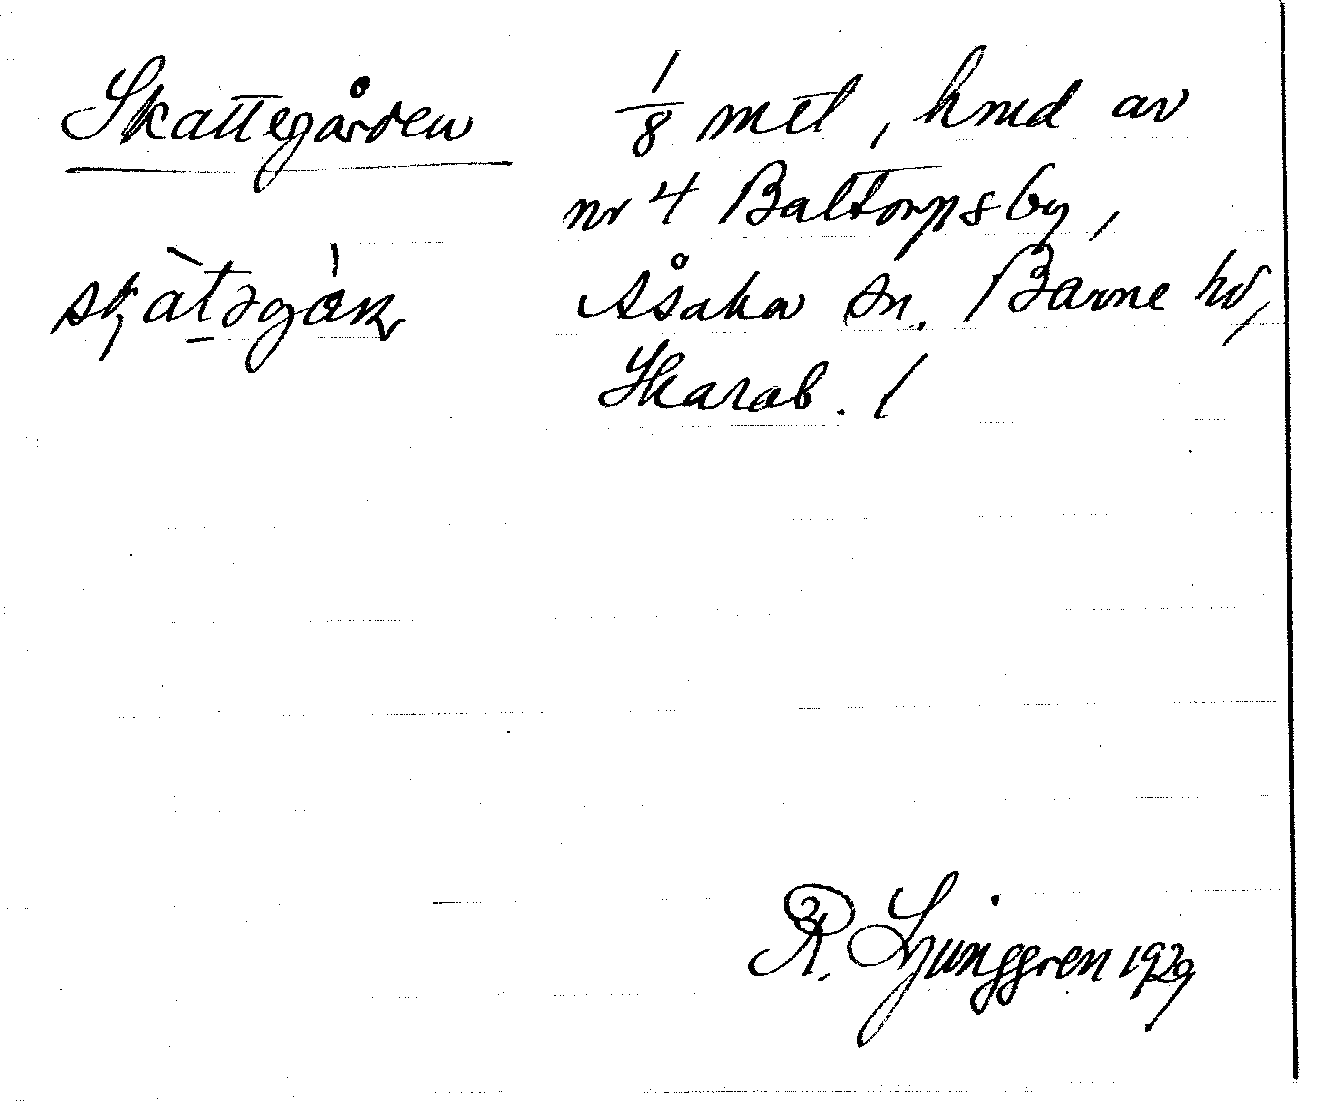 Skattegården
1/8 mtl, hmd av
nr 4 Baltorpsby,
Åsaka sn. Barne hd,
Skarab.
R. Ljunggren 1929